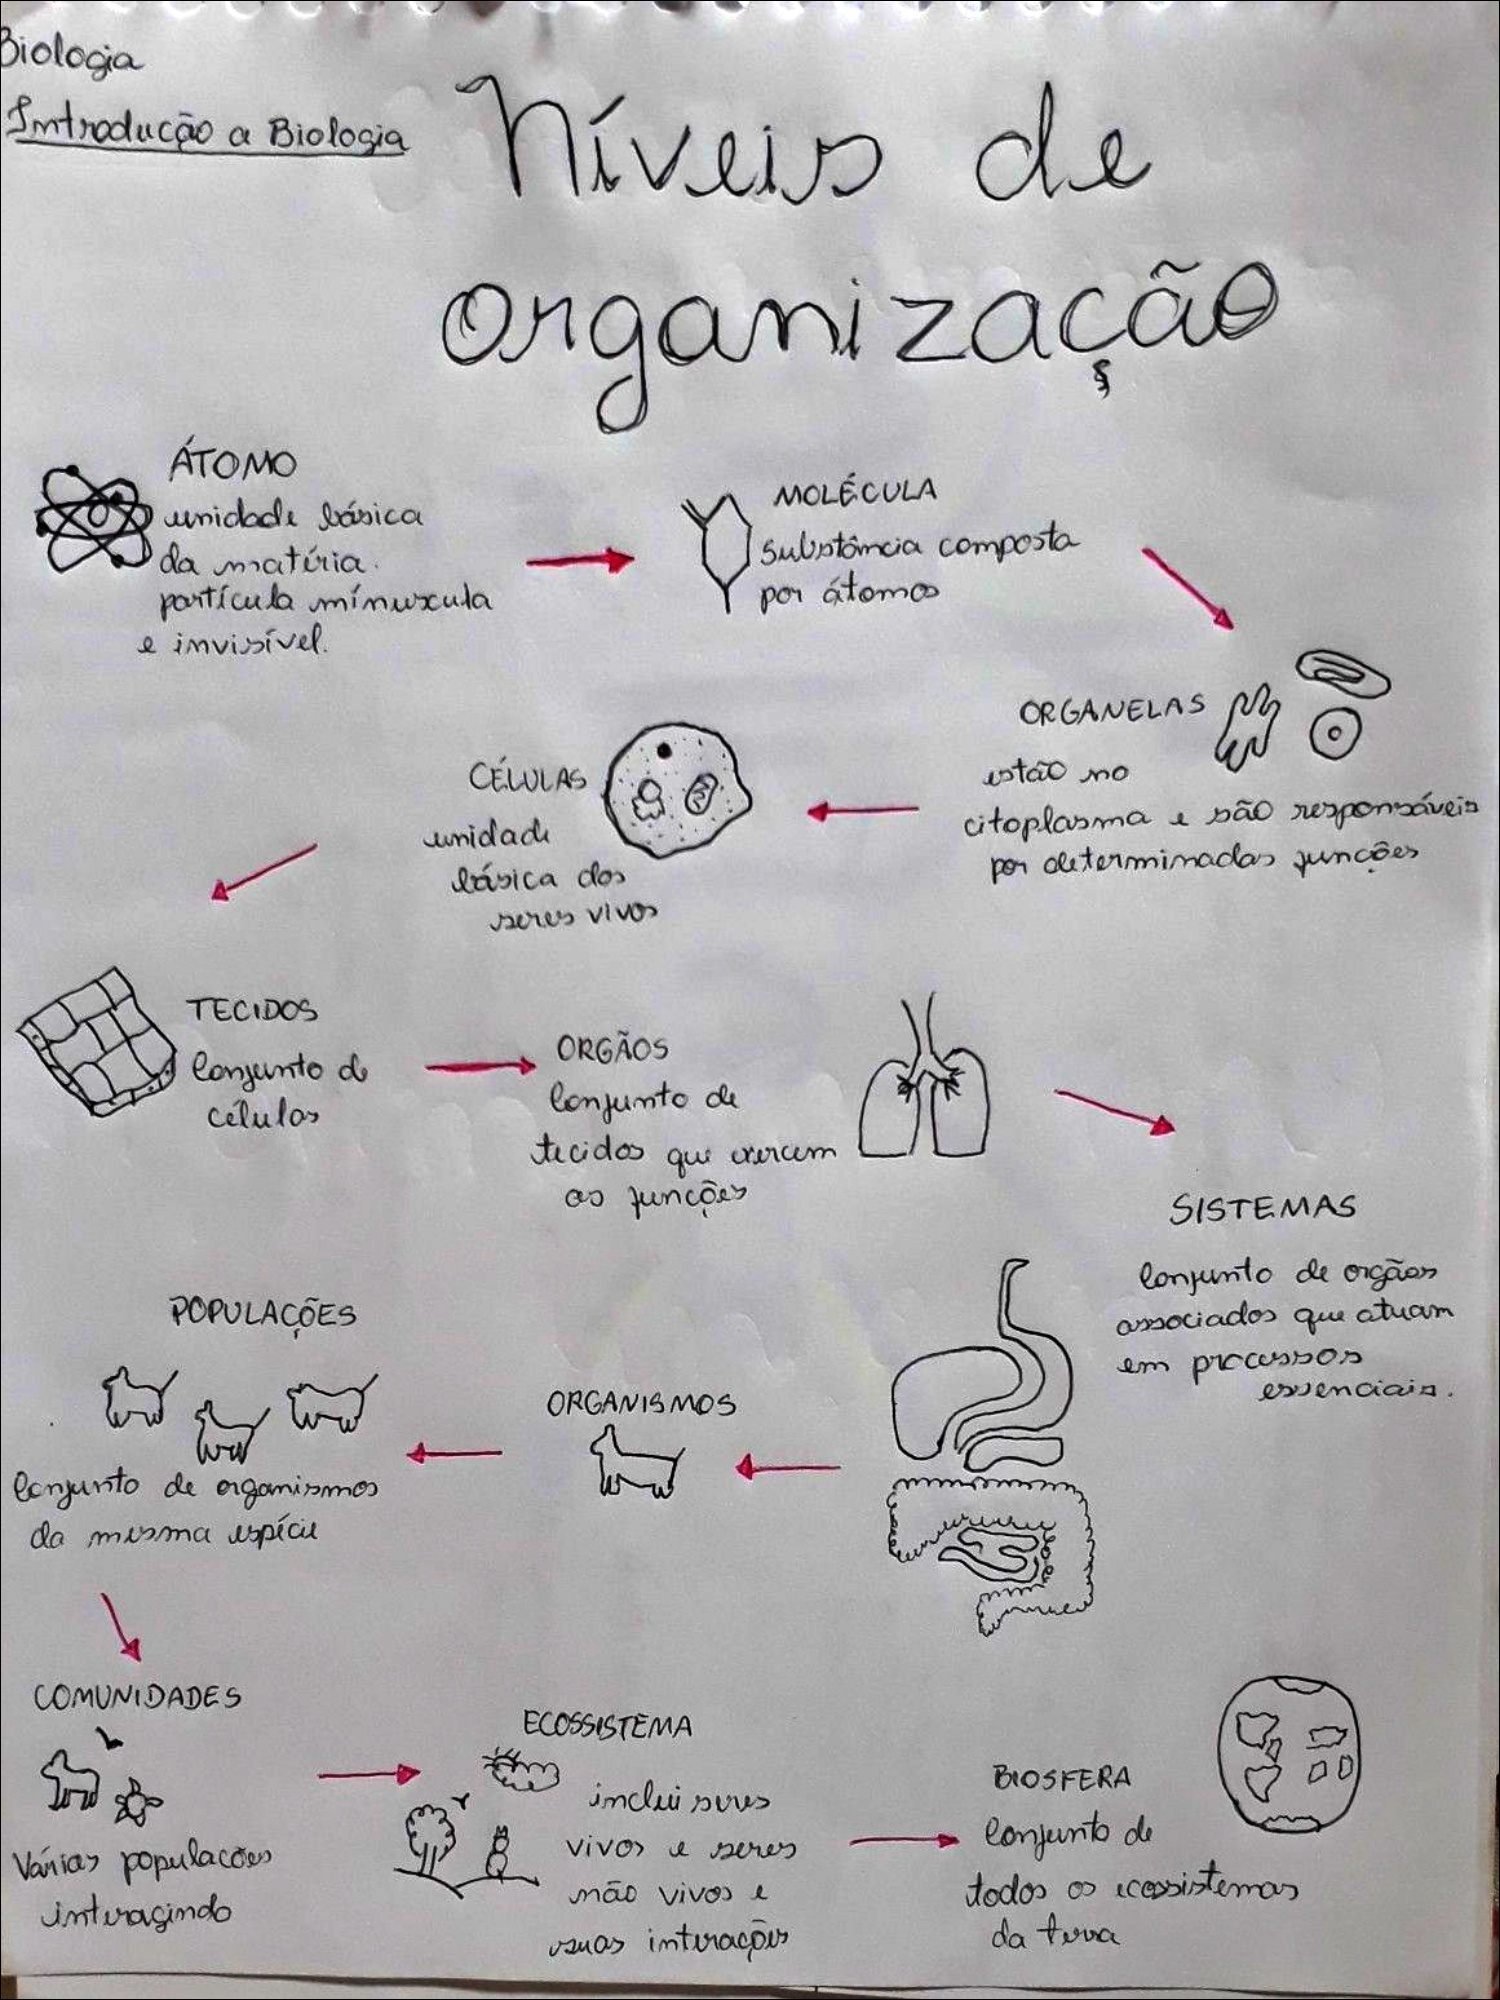 Biologia
Introdução a Biologia
Níveis de
organização
ÁTOMO
unidade básica
da matéria.
partícula mínuscula
e invisível.
MOLÉCULA
substância composta
por átomos
ORGANELAS
estão no
citoplasma e são responsáveis
por determinadas funções
CÉLULAS
unidade
básica dos
seres vivos
TECIDOS
Conjunto de
células
ORGÃOS
Conjunto de
tecidos que exercem
as funções
SISTEMAS
Conjunto de orgãos
associados que atuam
em processos
essenciais.
ORGANISMOS
POPULAÇÕES
Conjunto de organismos
da mesma espécie
COMUNIDADES
Várias populacões
interagindo
ECOSSISTEMA
inclui seres
vivos e seres
não vivos e
suas interações
BIOSFERA
Conjunto de
todos os ecossistemas
da terra